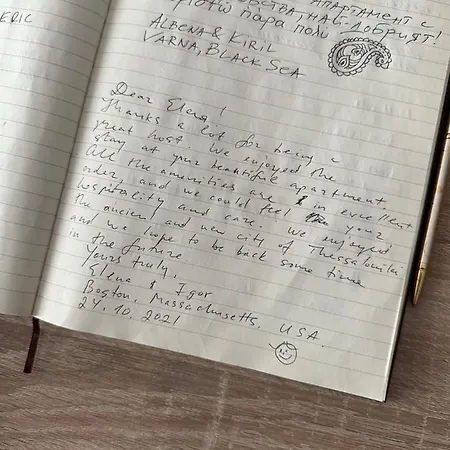 ERIC
АПАРТАМЕНТ С
пара поли
ALBENA & KIRIL
VARNA, BLACK SEA
Dear Elena!
Thanks a lot for being a
great host. We enjoyed the
stay at your beautiful apartment
All the amenities are in excellent
order and we could feel your
hospitality and care. We enjoyed
the ancient and new city of Thessaloniki
and we hope to be back some time
in the future
Yours truly,
Elena & Igor
Boston, Massachusetts, USA.
24.10.2021